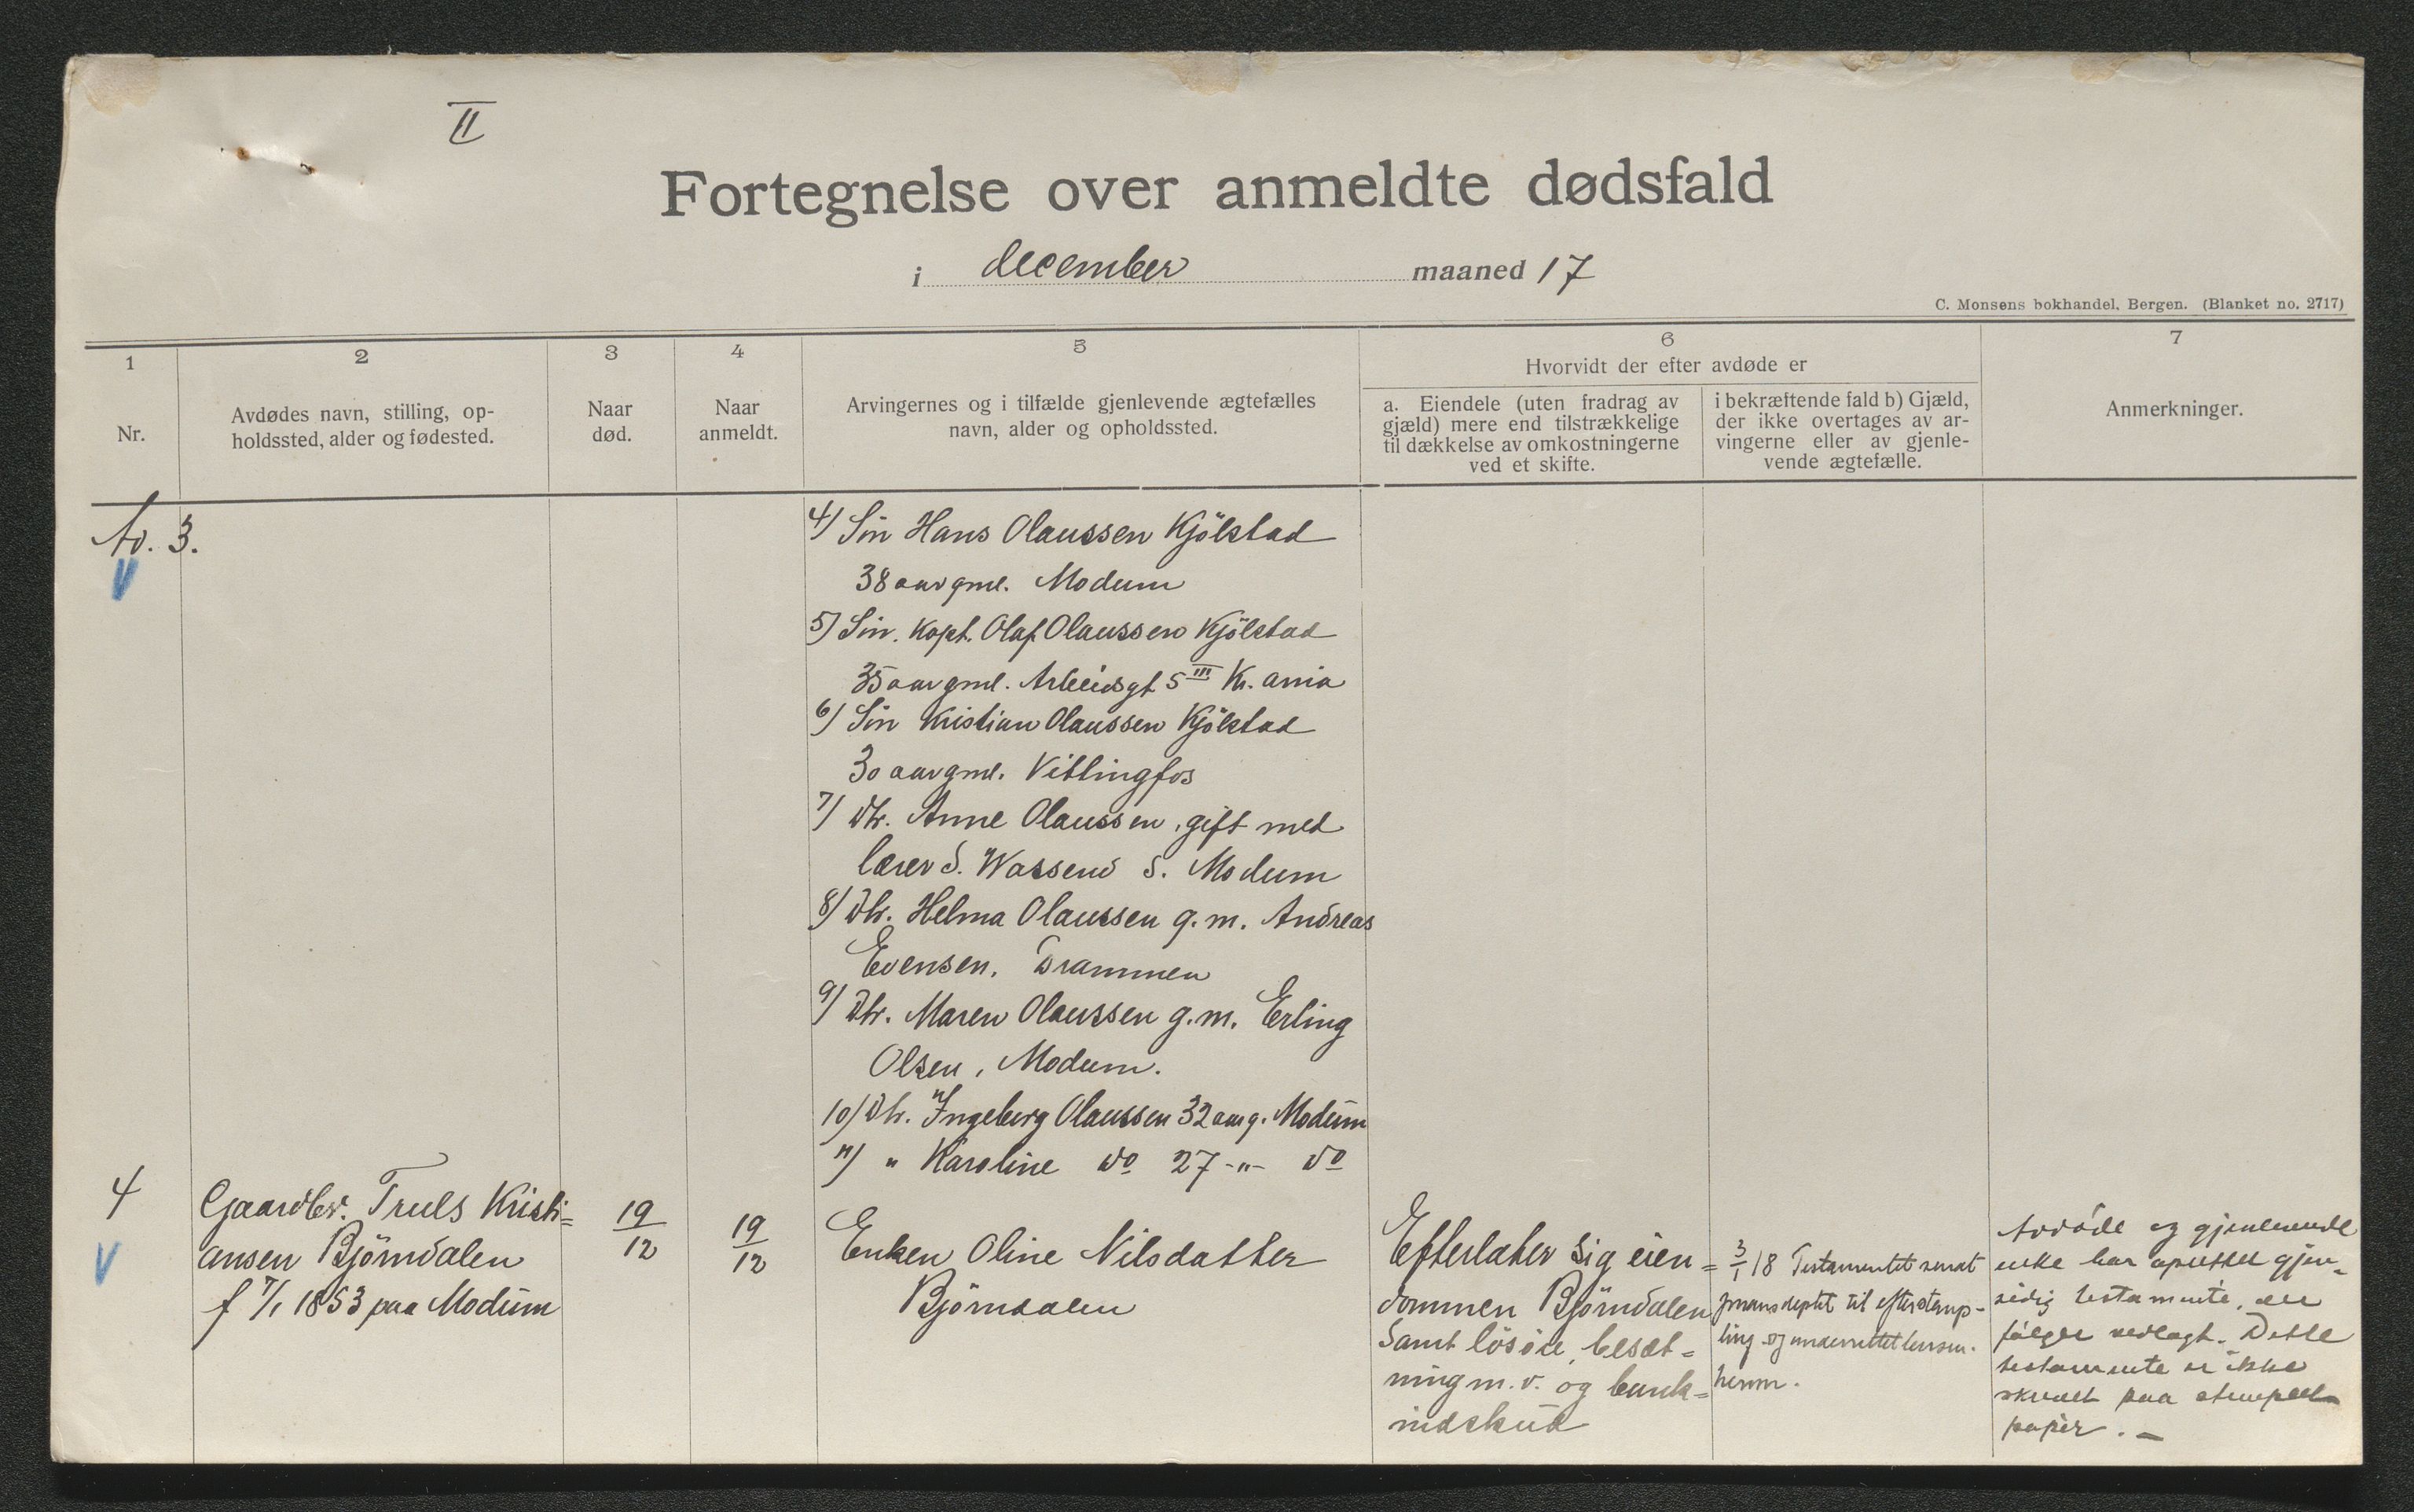 II
Fortegnelse over anmeldte dødsfald
i december maaned 17
C. Monsens bokhandel, Bergen. (Blanket no. 2717)
1
Nr.
2
Avdødes navn, stilling, op-
holdssted, alder og fødested.
3
Naar
død.
4
Naar
anmeldt.
5
Arvingernes og i tilfælde gjenlevende ægtefælles
navn, alder og opholdssted.
6
Hvorvidt der efter avdøde er
a. Eiendele (uten fradrag av
gjæld) mere end tilstrækkelige
til dækkelse av omkostningerne
ved et skifte.
i bekræftende fald b) Gjæld,
der ikke overtages av ar-
vingerne eller av gjenle-
vende ægtefælle.
7
Anmerkninger.
3.
4) Sön Hans Olaussen Kjölstad
38 aar gml. Modum
5) Sön. Kapt. Olaf Olaussen Kjölstad
35 aar gml. Arbeidsgt 5 III Kr. ania
6) Sön Kristian Olaussen Kjölstad
30 aar gml. Vittingfos
7) Dtr. Anne Olaussen, gift med
lærer S. Wassend S. Modum
8) Dtr. Helma Olaussen g. m. Andreas
Evensen, Drammen
9) Dtr. Maren Olaussen g. m. Erling
Olsen, Modum.
10) Dtr. Ingeborg Olaussen 32 aar g. Modum
11) " Karoline do 27 -"- do
4
Gaardbr. Truls Kristi=
ansen Björndalen
f 7/1 1853 paa Modum
19/12
19/12
Enken Oline Nilsdatter
Björndalen
Efterlater sig eien=
dommen Björndalen
samt lösöre, besæt=
ning m. v. og bank=
indskud
3/1 18 Testamentet sendt
finansdeptet til efterstemp-
ling og underrettet lensm.
herom.
Avdöde og gjenlevende
enke har oprettet gjen-
sidig testamente, der
fölger vedlagt. Dette
testamente er ikke
skrevet paa stempelt
papir. -